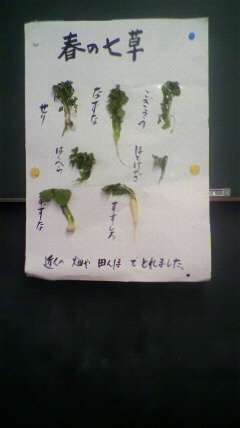 春の七草
せり
なずな
ごぎょう
はこべら
ほとけのざ
すずな
すずしろ
近くの 畑や 田んぼ でとれました。